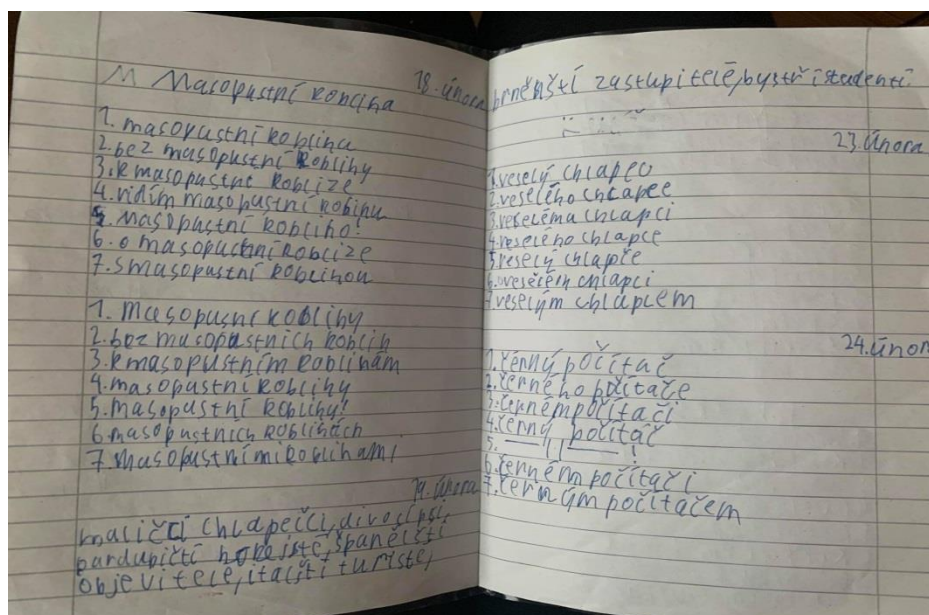 M Masopustní kobliha
18. února
1. masopustní kobliha
2. bez masopustní koblihy
3. k masopustní koblize
4. vidím masopustní kobihu
5. masopustní kobliho!
6. o masopustní koblize
7. s masopustní koblihou
1. masopusní koblihy
2. bez masopustních koblih
3. k masopustním koblihám
4. masopustní koblihy
5. masopustní koblihy!
6. masopustních koblihách
7. masopustními koblihami
19. února
maličcí chlapečci, divocí psi,
pardubičtí hokejisté, španělští
objevitelé, italští turisté,
brněnští zastupitelé, bystří studenti
23. února
1. veselý chlapec
2. veselého chlapce
3. veseléma chlapci
4. veselého chlapce
5. veselý chlapče
6. o veselém chlapci
7. veselým chlapcem
24. únor
1. černý počítač
2. černého počítače
3. černém počítači
4. černý počítač
5. —— 11 —— !
6. černém počítači
7. černým počítačem